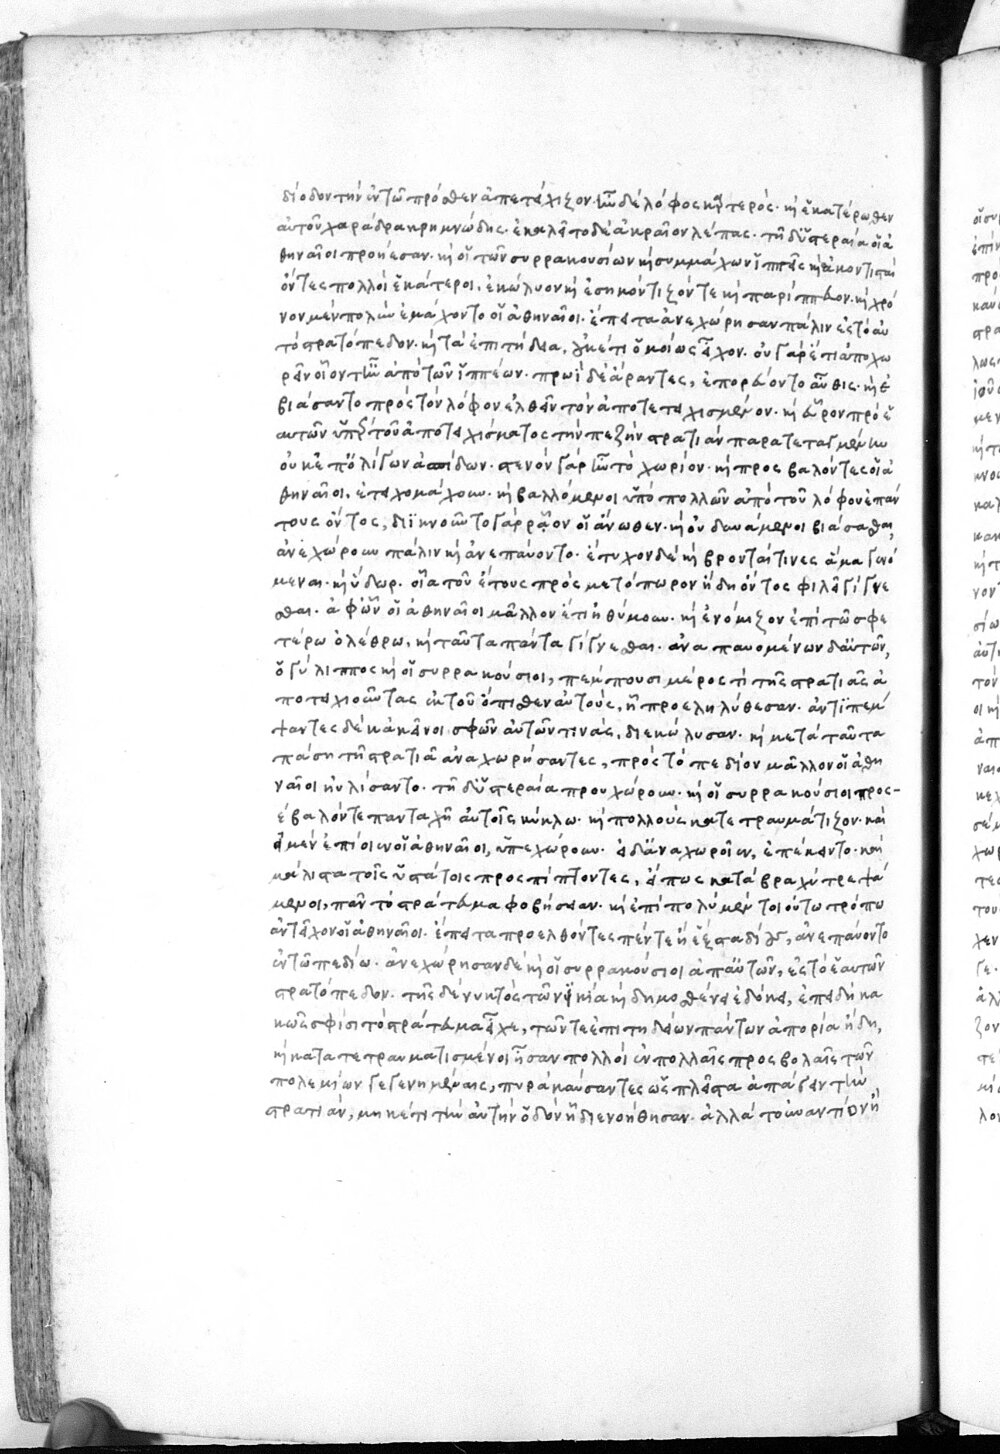 δίοδον τὴν ἐν τῶ πρόσθεν ἀπετείχιζον. ἦν δὲ λόφος καρτερὸς. καὶ ἑκατέρωθεν
αὐτοῦ χαράδρα κρημνώδης. ἐκαλεῖτο δὲ ἀκραῖον λέπας. τῆ δ' ὑστεραία οἱ ἀ
θηναῖοι προήεσαν. καὶ οἱ τῶν συρρακουσίων καὶ συμμάχων ἱππεῖς καὶ ἀκοντισταὶ
ὄντες πολλοὶ ἑκάτεροι. ἐκώλυον καὶ ἐσηκόντιζόν τε καὶ παρίππευον. καὶ χρό
νον μὲν πολὺν ἐμάχοντο οἱ ἀθηναῖοι. ἔπειτα ἀνεχώρησαν πάλιν ἐς τὸ αὐ
τὸ στρατόπεδον. καὶ τὰ ἐπιτήδεια, οὐκέτι ὁμοίως εἶχον. οὐ γὰρ ἔτι ἀποχω
ρεῖν οἷόν τ' ἦν ἀπὸ τῶν ἱππέων. πρωῒ δὲ ἄραντες, ἐπορεύοντο αὖθις. καὶ ἐ
βιάσαντο πρὸς τὸν λόφον ἐλθεῖν τὸν ἀποτετειχισμένον. καὶ εὗρον πρὸ ἑ
αυτῶν ὑπὲρ τοῦ ἀποτειχίσματος τὴν πεζὴν στρατιὰν παρατεταγμένην
οὐκ ἐπ' ὀλίγων ἀσπίδων. στενὸν γὰρ ἦν τὸ χωρίον. καὶ προςβαλόντες οἱ ἀ
θηναῖοι. ἐτειχομάχουν. καὶ βαλλόμενοι ὑπὸ πολλῶν ἀπὸ τοῦ λόφου ἐπάν
τους ὄντος, διϊκνοῦντο γὰρ ῥᾷον οἱ ἄνωθεν. καὶ οὐ δυνάμενοι βιάσασθαι,
ἀνεχώρουν πάλιν καὶ ἀνεπαύοντο. ἔτυχον δὲ καὶ βρονταί τινες ἅμα γενό
μεναι. καὶ ὕδωρ. οἷα τοῦ ἔτους πρὸς μετόπωρον ἤδη ὄντος φιλεῖ γίγνε
σθαι. ἀφ' ὧν οἱ ἀθηναῖοι μᾶλλον ἔτι ἠθύμουν. καὶ ἐνόμιζον ἐπὶ τῶ σφε
τέρω ὀλέθρω, καὶ ταῦτα πάντα γίγνεσθαι. ἀναπαυομένων δ' αὐτῶν,
ὁ γύλιππος καὶ οἱ συρρακούσιοι, πέμπουσι μέρος τὶ τῆς στρατιᾶς ἀ
ποτειχιοῦντας ἐκ τοῦ ὄπισθεν αὐτοὺς, ἧ προεληλύθεσαν. ἀντιπέμ
ψαντες δὲ κἀκεῖνοι σφῶν αὐτῶν τινάς, διεκώλυσαν. καὶ μετὰ ταῦτα
πάση τῆ στρατιᾶ ἀναχωρήσαντες, πρὸς τὸ πεδίον μᾶλλον οἱ ἀθη
ναῖοι ηὐλίσαντο. τῆ δ' ὑστεραία προυχώρουν. καὶ οἱ συρρακούσιοι προς-
έβαλόν τε πανταχῆ αὐτοῖς κύκλω. καὶ πολλοὺς κατετραυμάτιζον. καὶ
εἰ μὲν ἐπίοιεν οἱ ἀθηναῖοι, ὑπεχώρουν. εἰ δ' ἀναχωροῖεν, ἐπέκειντο. καὶ
μάλιστα τοῖς ὑστάτοις προςπίπτοντες, εἴ πως κατὰ βραχὺ τρεψά
μενοι, πᾶν τὸ στράτευμα φοβήσειαν. καὶ ἐπὶ πολὺ μὲν τοιούτω τρόπω
ἀντεῖχον οἱ ἀθηναῖοι. ἔπειτα προελθόντες πέντε ἢ ἓξ σταδίους, ἀνεπαύοντο
ἐν τῶ πεδίω. ἀνεχώρησαν δὲ καὶ οἱ συρρακούσιοι ἀπ' αὐτῶν, ἐς τὸ ἑαυτῶν
στρατόπεδον. τῆς δὲ νυκτὸς τῶ νικία καὶ δημοσθένει ἐδόκει, ἐπειδὴ κα
κῶς σφίσι τὸ στράτευμα εἶχε, τῶν τε ἐπιτηδείων πάντων ἀπορία ἤδη,
καὶ κατατετραυματισμένοι ἦσαν πολλοὶ ἐν πολλαῖς προςβολαῖς τῶν
πολεμίων γεγενημέναις, πυρὰ καύσαντες ὡς πλεῖστα ἀπάγειν τὴν
στρατιάν, μηκέτι τὴν αὐτὴν ὁδὸν ἧ διενοήθησαν. ἀλλὰ τοὐναντίον ἢ